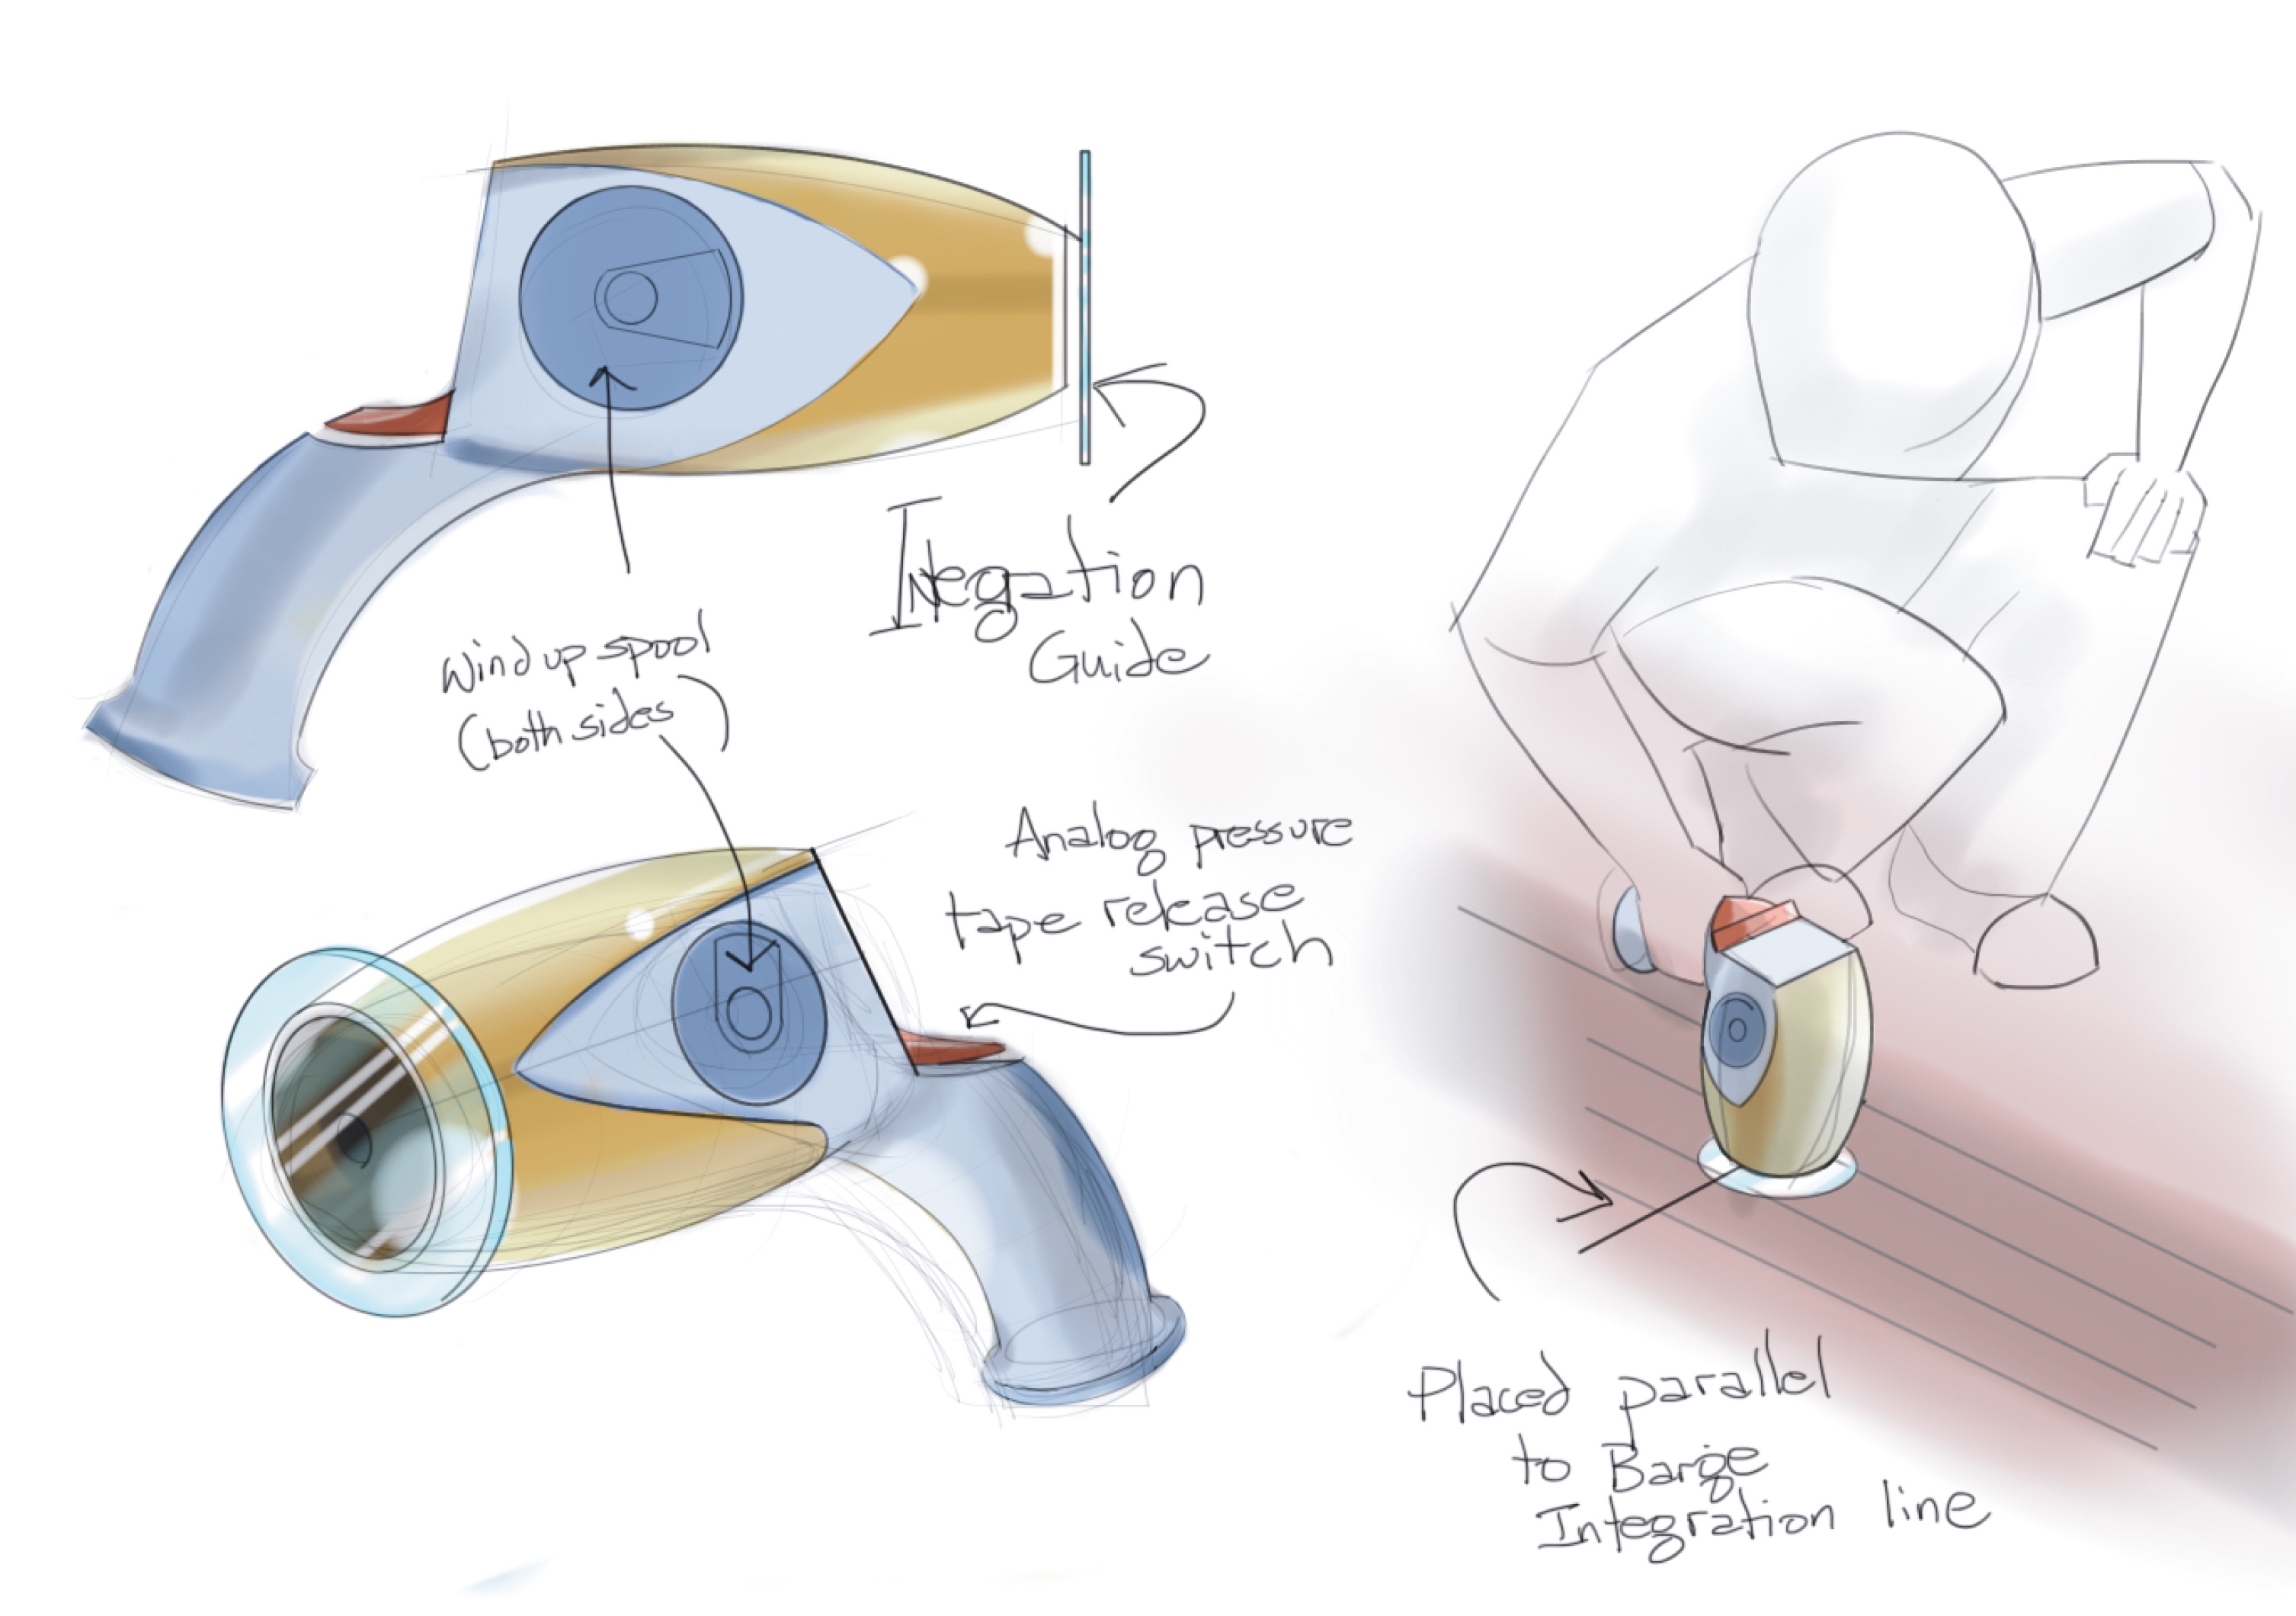 Integation
Guide
Wind up spool
(both sides)
Analog pressure
tape release
switch
Placed parallel
to Barge
Integration line